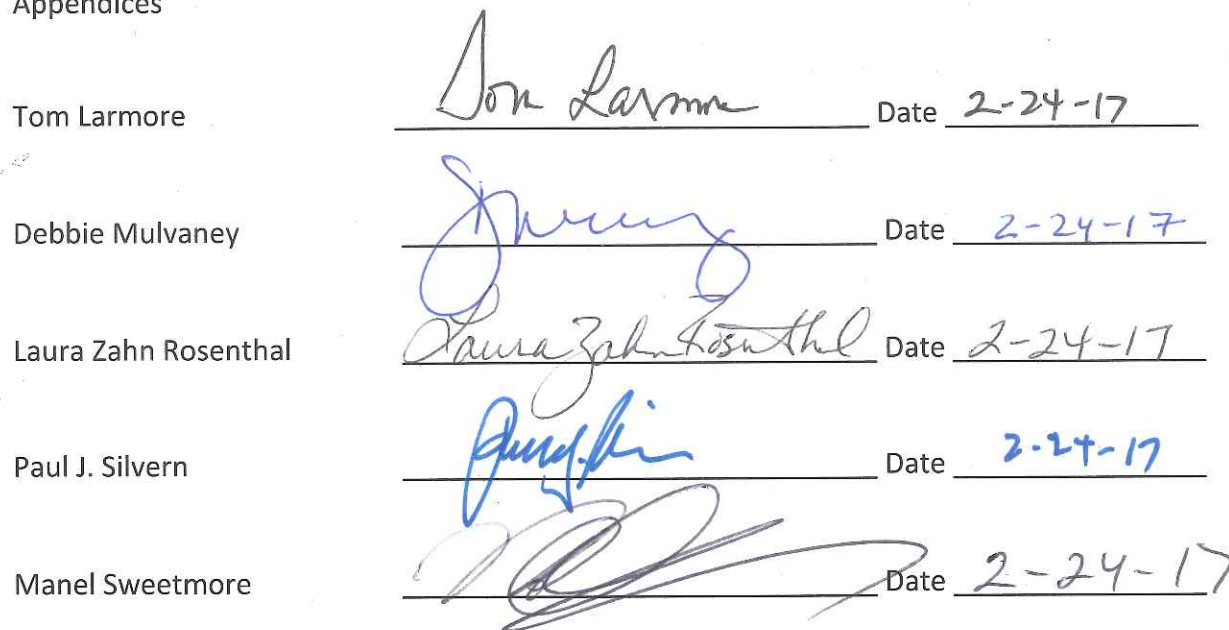 Appendices
Tom Larmore Tom Larmore Date 2-24-17
Debbie Mulvaney Date 2-24-17
Laura Zahn Rosenthal Laura Zahn Rosenthal Date 2-24-17
Paul J. Silvern Date 2-24-17
Manel Sweetmore Date 2-24-17